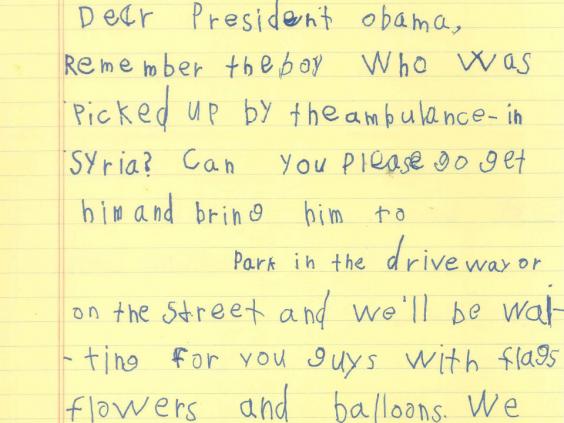 Dear President obama,
Remember the boy who was
picked up by the ambulance- in
Syria? Can you please go get
him and bring him to
Park in the driveway or
on the street and we'll be wai-
-ting for you guys with flags
flowers and balloons. We